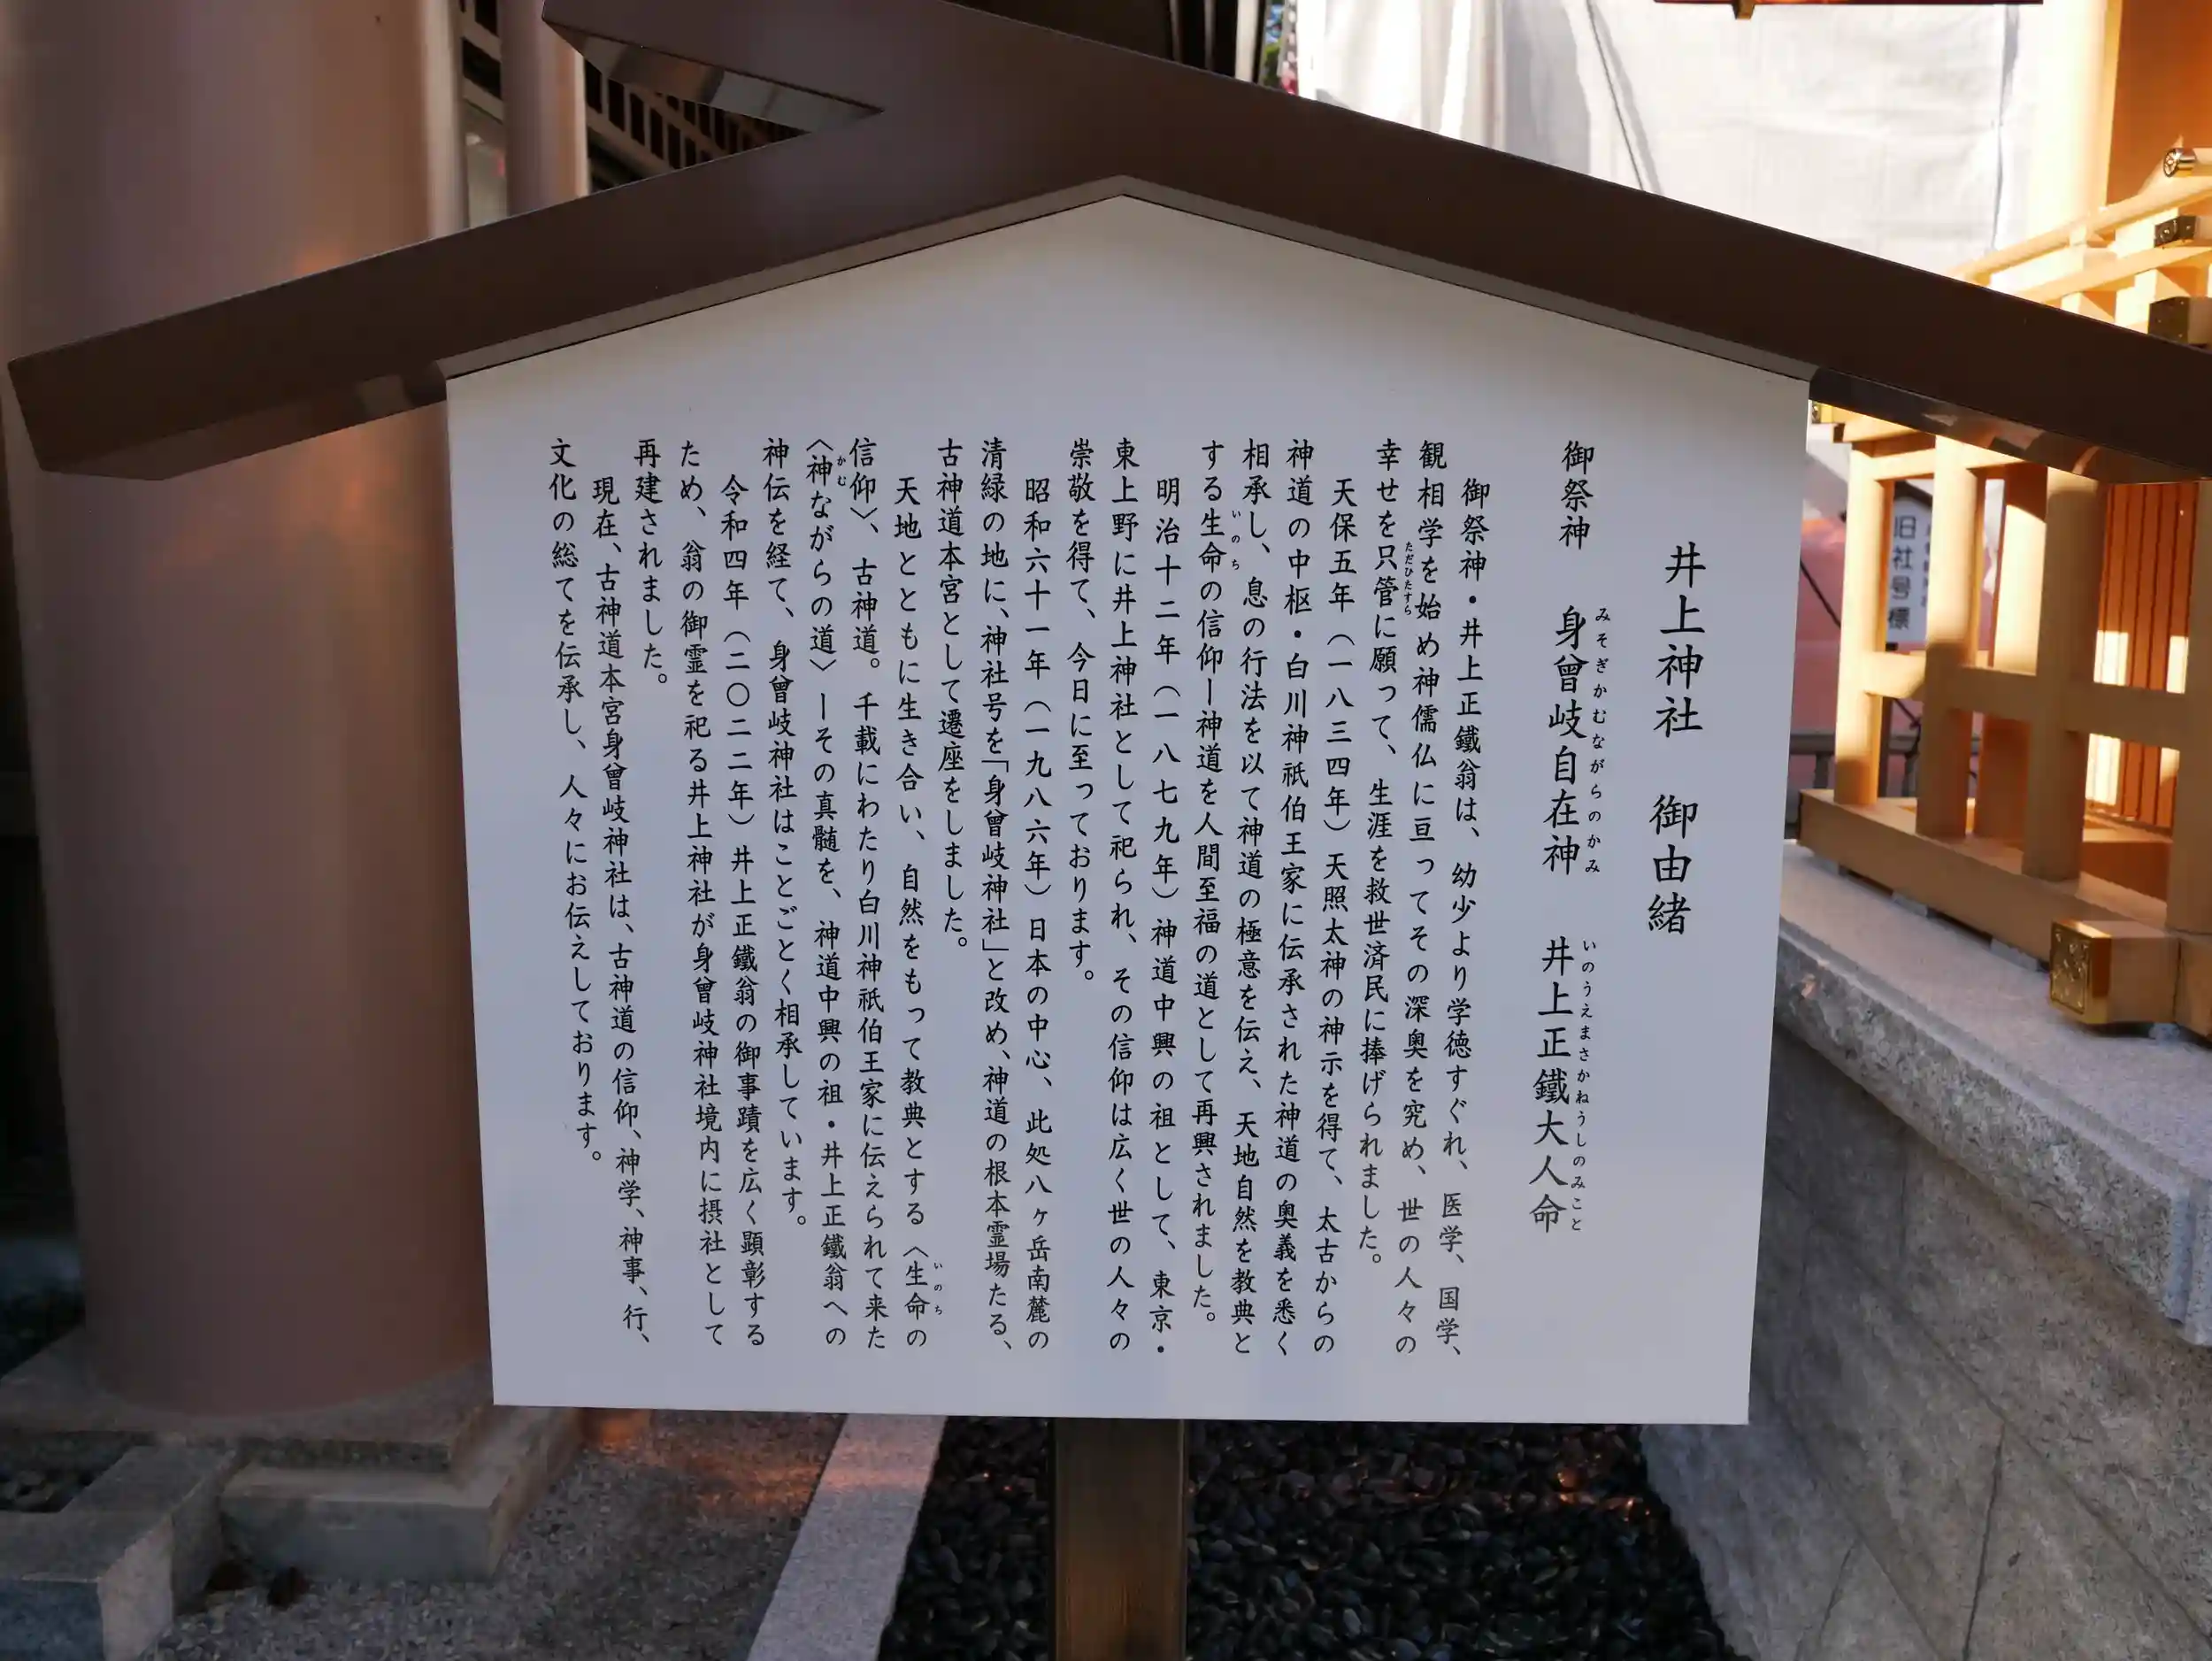 井上神社 御由緒
御祭神 身曾岐自在神 井上正鐵大人命
みそぎかむながらのかみ いのうえまさかねうしのみこと
御祭神・井上正鐵翁は、幼少より学徳すぐれ、医学、国学、
観相学を始め神儒仏に亘ってその深奥を究め、世の人々の
幸せを只管に願って、生涯を救世済民に捧げられました。
ただひたすら
天保五年（一八三四年）天照太神の神示を得て、太古からの
神道の中枢・白川神祇伯王家に伝承された神道の奥義を悉く
相承し、息の行法を以て神道の極意を伝え、天地自然を教典と
する生命の信仰ー神道を人間至福の道として再興されました。
いのち
明治十二年（一八七九年）神道中興の祖として、東京・
東上野に井上神社として祀られ、その信仰は広く世の人々の
崇敬を得て、今日に至っております。
昭和六十一年（一九八六年）日本の中心、此処八ヶ岳南麓の
清緑の地に、神社号を「身曾岐神社」と改め、神道の根本霊場たる、
古神道本宮として遷座をしました。
天地とともに生き合い、自然をもって教典とする〈生命の
いのち
信仰〉、古神道。千載にわたり白川神祇伯王家に伝えられて来た
〈神ながらの道〉ーその真髄を、神道中興の祖・井上正鐵翁への
かむ
神伝を経て、身曾岐神社はことごとく相承しています。
令和四年（二〇二二年）井上正鐵翁の御事蹟を広く顕彰する
ため、翁の御霊を祀る井上神社が身曾岐神社境内に摂社として
再建されました。
現在、古神道本宮身曾岐神社は、古神道の信仰、神学、神事、行、
文化の総てを伝承し、人々にお伝えしております。
旧社号標